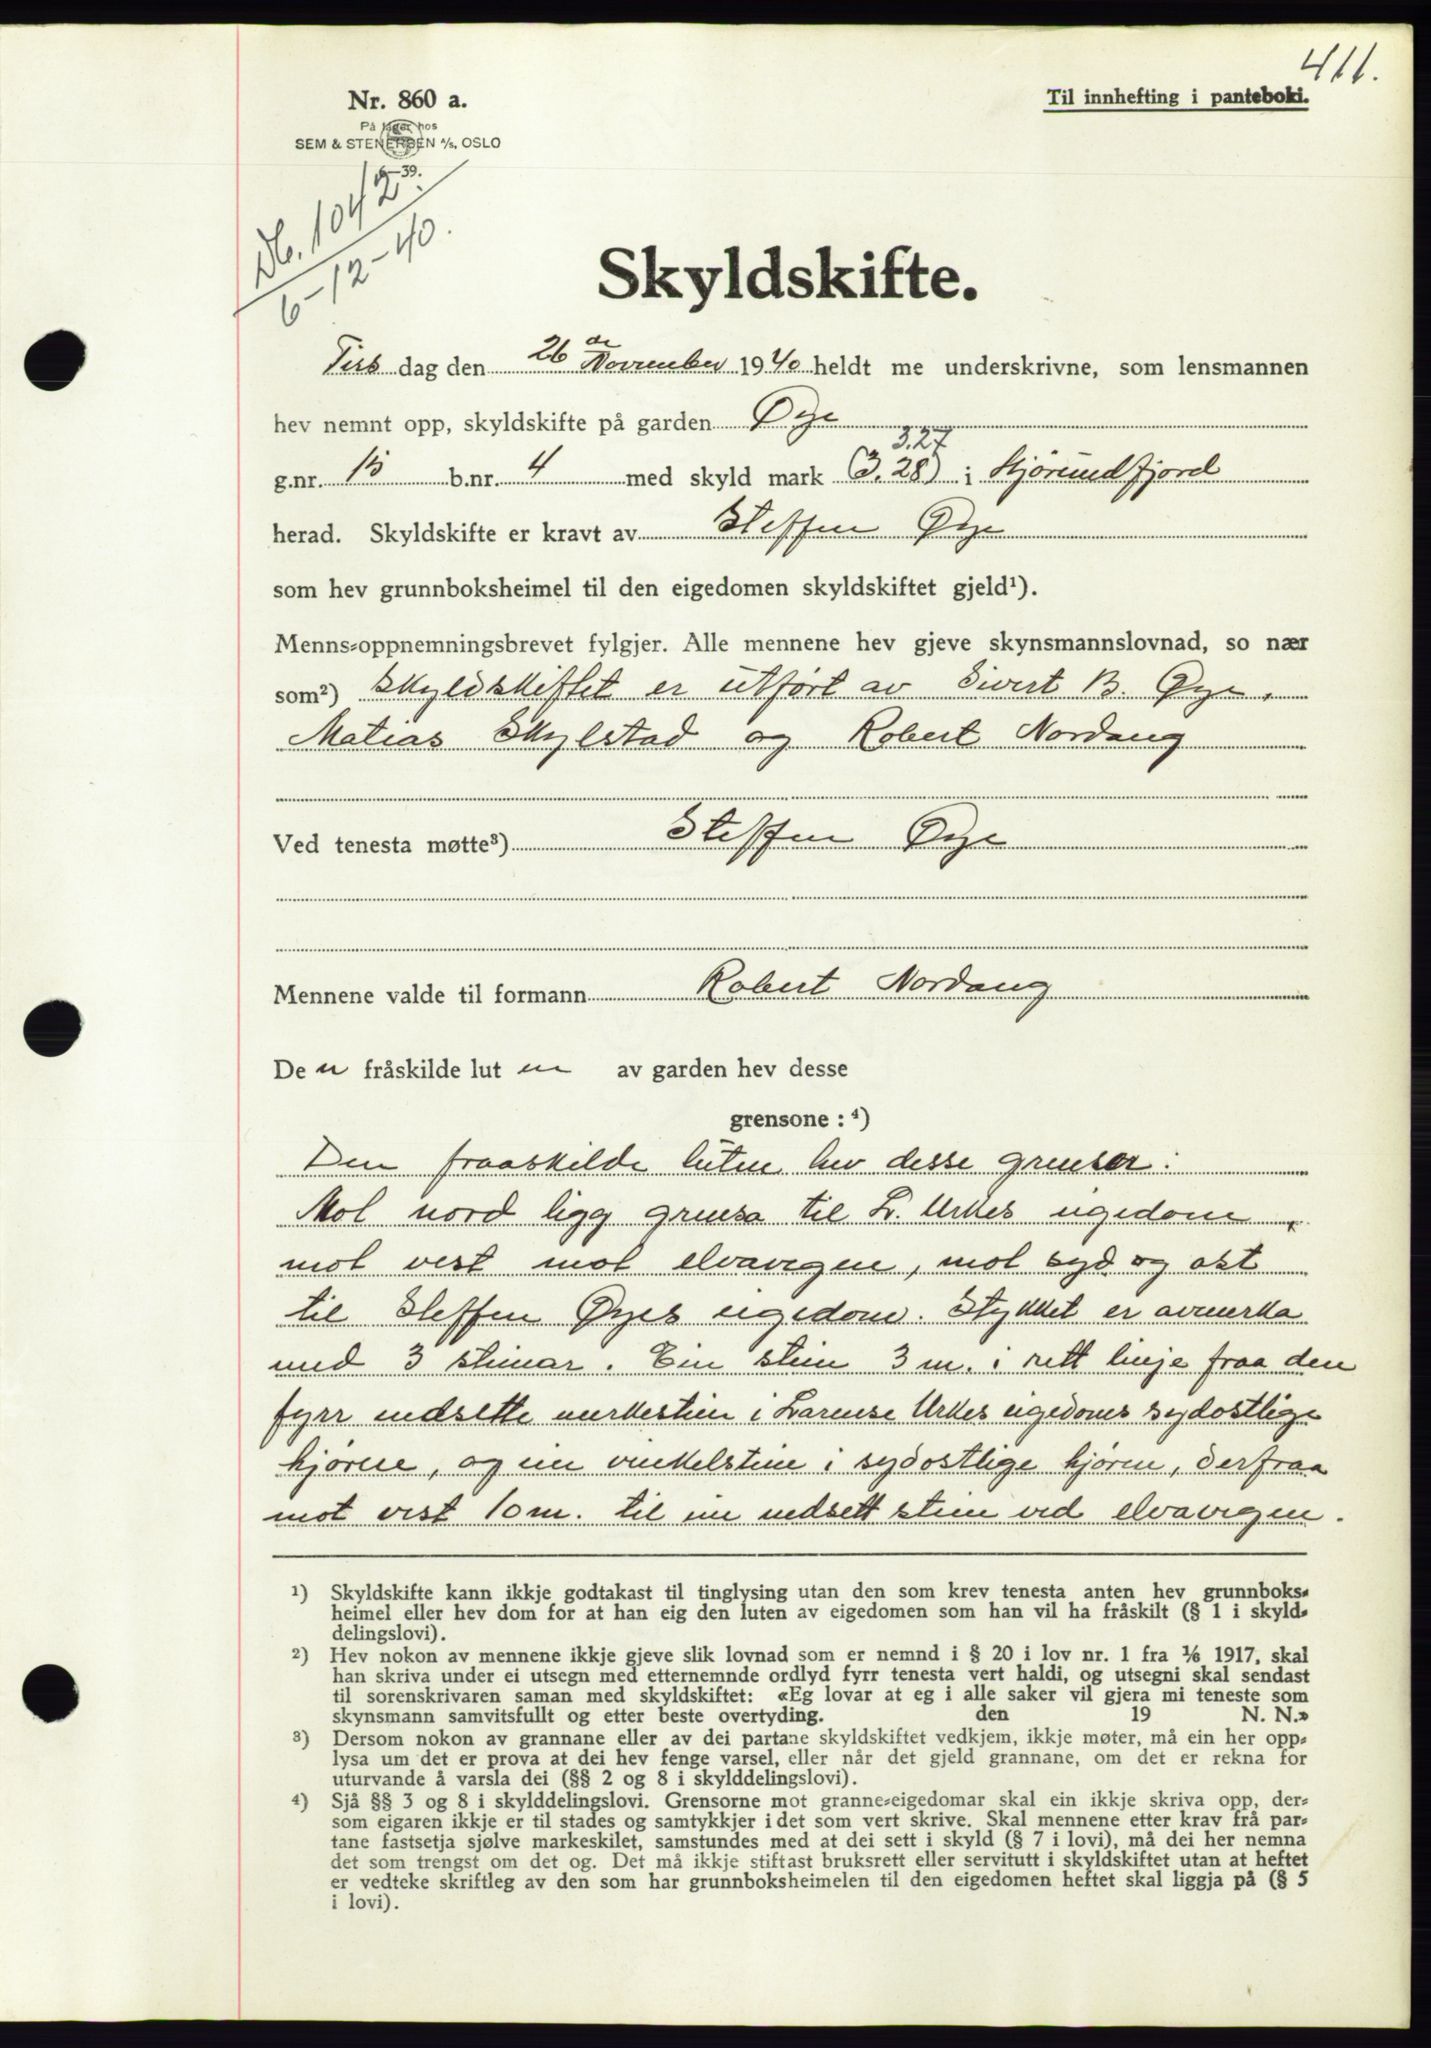 411.
Nr. 860 a.
Til innhefting i panteboki.
På lager hos
SEM & STENERSEN A/S, OSLO
6—39.
Db. 1042
6-12-40.
Skyldskifte.
Tirsdag den 26de November 1940 heldt me underskrivne, som lensmannen
hev nemnt opp, skyldskifte på garden Øye
3.27
g.nr. 15 b.nr. 4 med skyld mark (3.28) i Hjørundfjord
herad. Skyldskifte er kravt av Steffen Øye
som hev grunnboksheimel til den eigedomen skyldskiftet gjeld¹).
Menns-oppnemningsbrevet fylgjer. Alle mennene hev gjeve skynsmannslovnad, so nær
som²) Skyldskiftet er utført av Sivert B. Øye,
Matias Skylstad og Robert Nordang
Ved tenesta møtte³) Steffen Øye
Mennene valde til formann Robert Nordang
De n fråskilde lut en av garden hev desse
grensone : ⁴)
Den fraaskilde luten hev desse grenser:
Mot nord ligg grensa til L. Urkes eigedom,
mot vest mot elvavegen, mot syd og ost
til Steffen Øyes eigedom. Stykket er avmerka
med 3 steinar. Ein stein 3 m. i rett linje fraa den
fyrr nedsette merkestein i Larense Urkes eigedoms sydostlige
hjørne, og ein vinkelstein i sydostlige hjørne, derfraa
mot vest 10 m. til ein nedsett stein ved elvavegen.
¹) Skyldskifte kann ikkje godtakast til tinglysing utan den som krev tenesta anten hev grunnboks-
heimel eller hev dom for at han eig den luten av eigedomen som han vil ha fråskilt (§ 1 i skyld-
delingslovi).
²) Hev nokon av mennene ikkje gjeve slik lovnad som er nemnd i § 20 i lov nr. 1 fra 1/6 1917, skal
han skriva under ei utsegn med etternemnde ordlyd fyrr tenesta vert haldi, og utsegni skal sendast
til sorenskrivaren saman med skyldskiftet: «Eg lovar at eg i alle saker vil gjera mi teneste som
skynsmann samvitsfullt og etter beste overtyding. den 19 N. N.»
³) Dersom nokon av grannane eller av dei partane skyldskiftet vedkjem, ikkje møter, må ein her opp-
lysa um det er prova at dei hev fenge varsel, eller når det gjeld grannane, om det er rekna for
uturvande å varsla dei (§§ 2 og 8 i skylddelingslovi).
⁴) Sjå §§ 3 og 8 i skylddelingslovi. Grensorne mot granne-eigedomar skal ein ikkje skriva opp, der-
som eigaren ikkje er til stades og samtykkjer i det som vert skrive. Skal mennene etter krav frå par-
tane fastsetja sjølve markeskilet, samstundes med at dei sett i skyld (§ 7 i lovi), må dei her nemna
det som trengst om det og. Det må ikkje stiftast bruksrett eller servitutt i skyldskiftet utan at heftet
er vedteke skriftleg av den som har grunnboksheimelen til den eigedomen heftet skal liggja på (§ 5
i lovi).